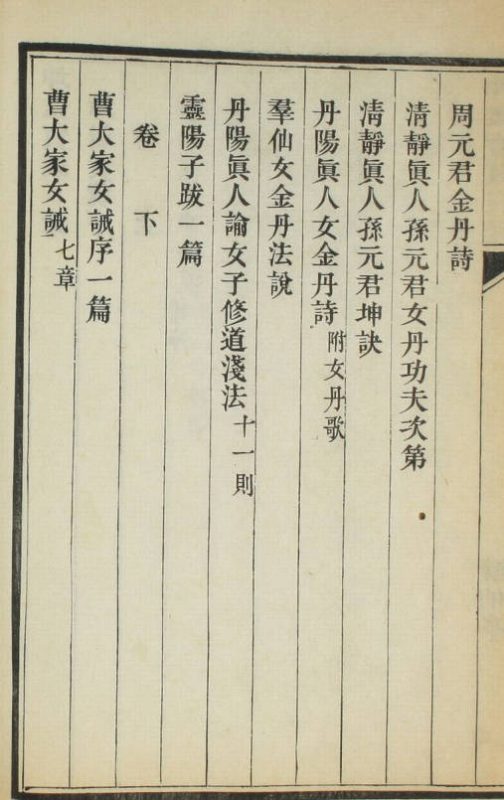 周元君金丹詩
清靜眞人孫元君女丹功夫次第
清靜眞人孫元君坤訣
丹陽眞人女金丹詩附女丹歌
羣仙女金丹法說
丹陽眞人論女子修道淺法十一則
靈陽子跋一篇
卷下
曹大家女誡序一篇
曹大家女誡七章